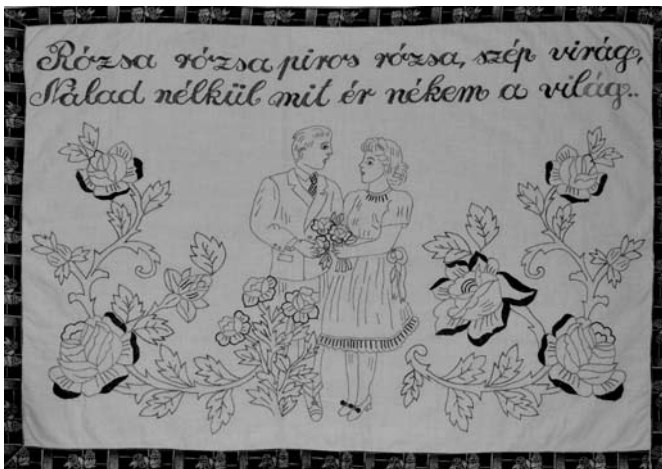 Rózsa rózsa piros rózsa, szép virág,
Nálad nélkül mit ér nékem a világ..